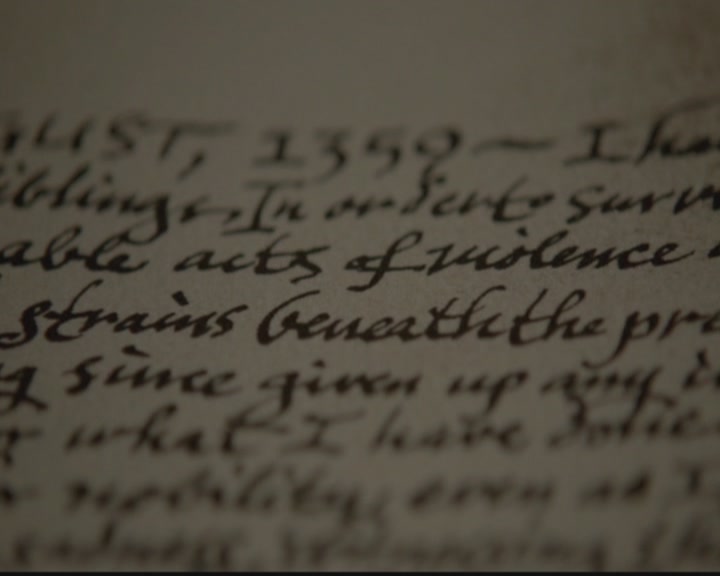 GUST, 1350 — I ha
iblings. In order to surv
able acts of violence
strains beneath the pro
g since given up any i
what I have done
nobility, even as I